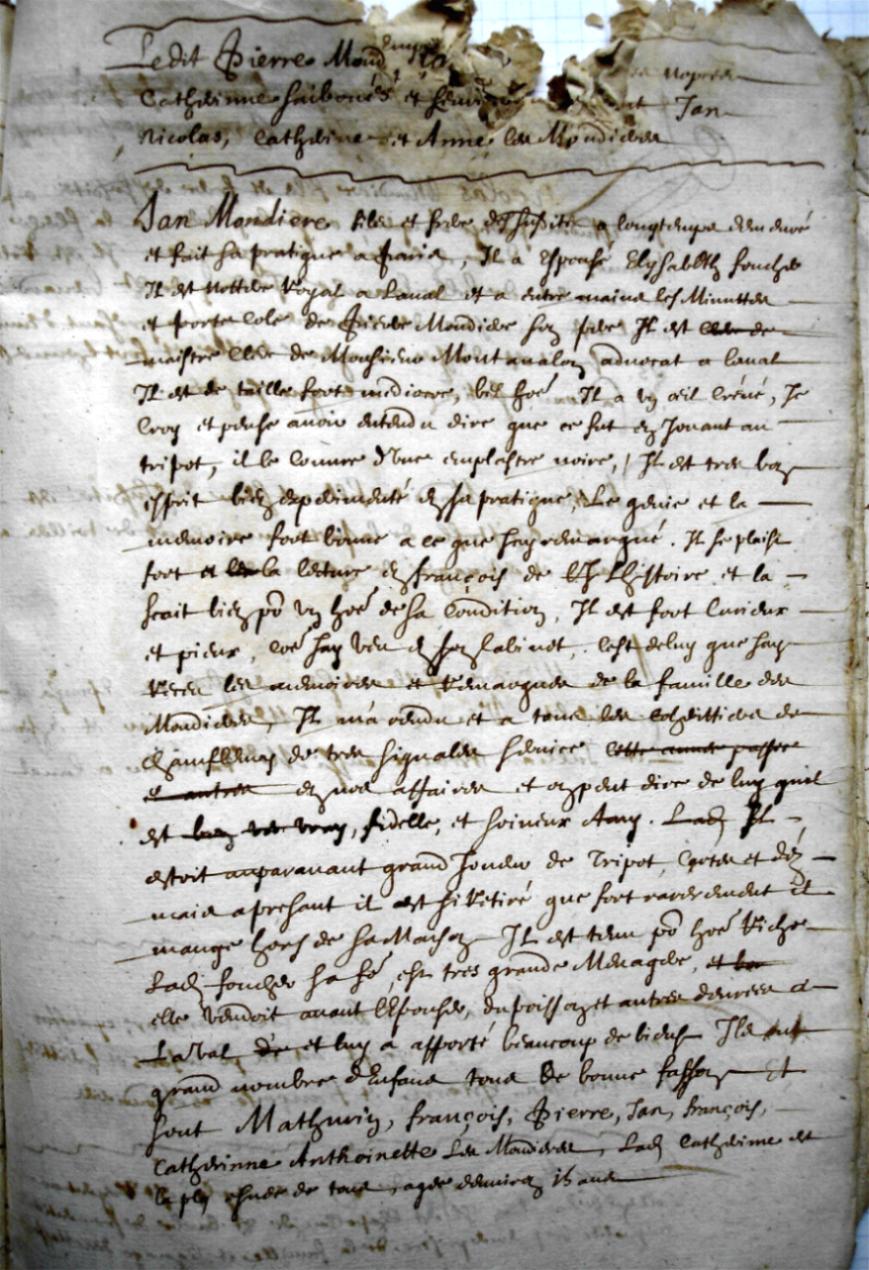 Ledit Pierre Mondiere
Catherinne et Jan
Nicolas, Catherine et Anne les Mondieres
Jan Mondiere fils et frere dessusdits a longtemps demeuré
et fait sa pratique a Paris, Il a Espousé Elysabeth foucher
Il est Nottere Royal a Laval et a entre mains les Minuttes
et portecole de Pierre Mondiere son pere Il est clerc de
maistre clerc de Monsieur Montavalon advocat a laval
Il est de taille fort mediocre, bel hoe Il a un œil Crévé, Je
Croy et pense avoir entendu dire que ce fut en Jouant au
tripot, il le couvre d'une emplastre noire, Il est tres bon
esprit bien experimenté en sa pratique, Le genie et la
memoire fort bonne a ce que J'ay remarqué. Il se plaist
fort a la lecture en françois de l'Histoire et la
scait bien po un hoe de sa Condition, Il est fort Curieux
et pieux, coe J'ay veu en son Cabinet, C'est de luy que J'ay
Receu les memoires et Remarques de la famille des
Mondieres, Il m'a rendu et a tous les heritiers de
de tres signalez service cette année passée
et autres en nos affaires et on peut dire de luy quil
est bon vray, fidelle, et soineux Amy. Led Il
estoit auparavant grand Joueur de Tripot, Cartes et dez
mais apresant il est si Retiré que fort rarement il
mange hors de sa Maison Il est tenu po hoe Riche
Lad foucher sa fe, est tres grande Menagere, et
elle vendoit avant l'Espouser, du poisson et autres denrees a
Laval et luy a apporté beaucoup de biens Ils ont
grand nombre d'Enfans tous de bonne fasson Et
sont Mathurin, françois, Pierre, Jan, françois,
Catherinne Anthoinette Les Mondieres, Lad Catherinne est
la plus de tous, agee d'environ 15 ans